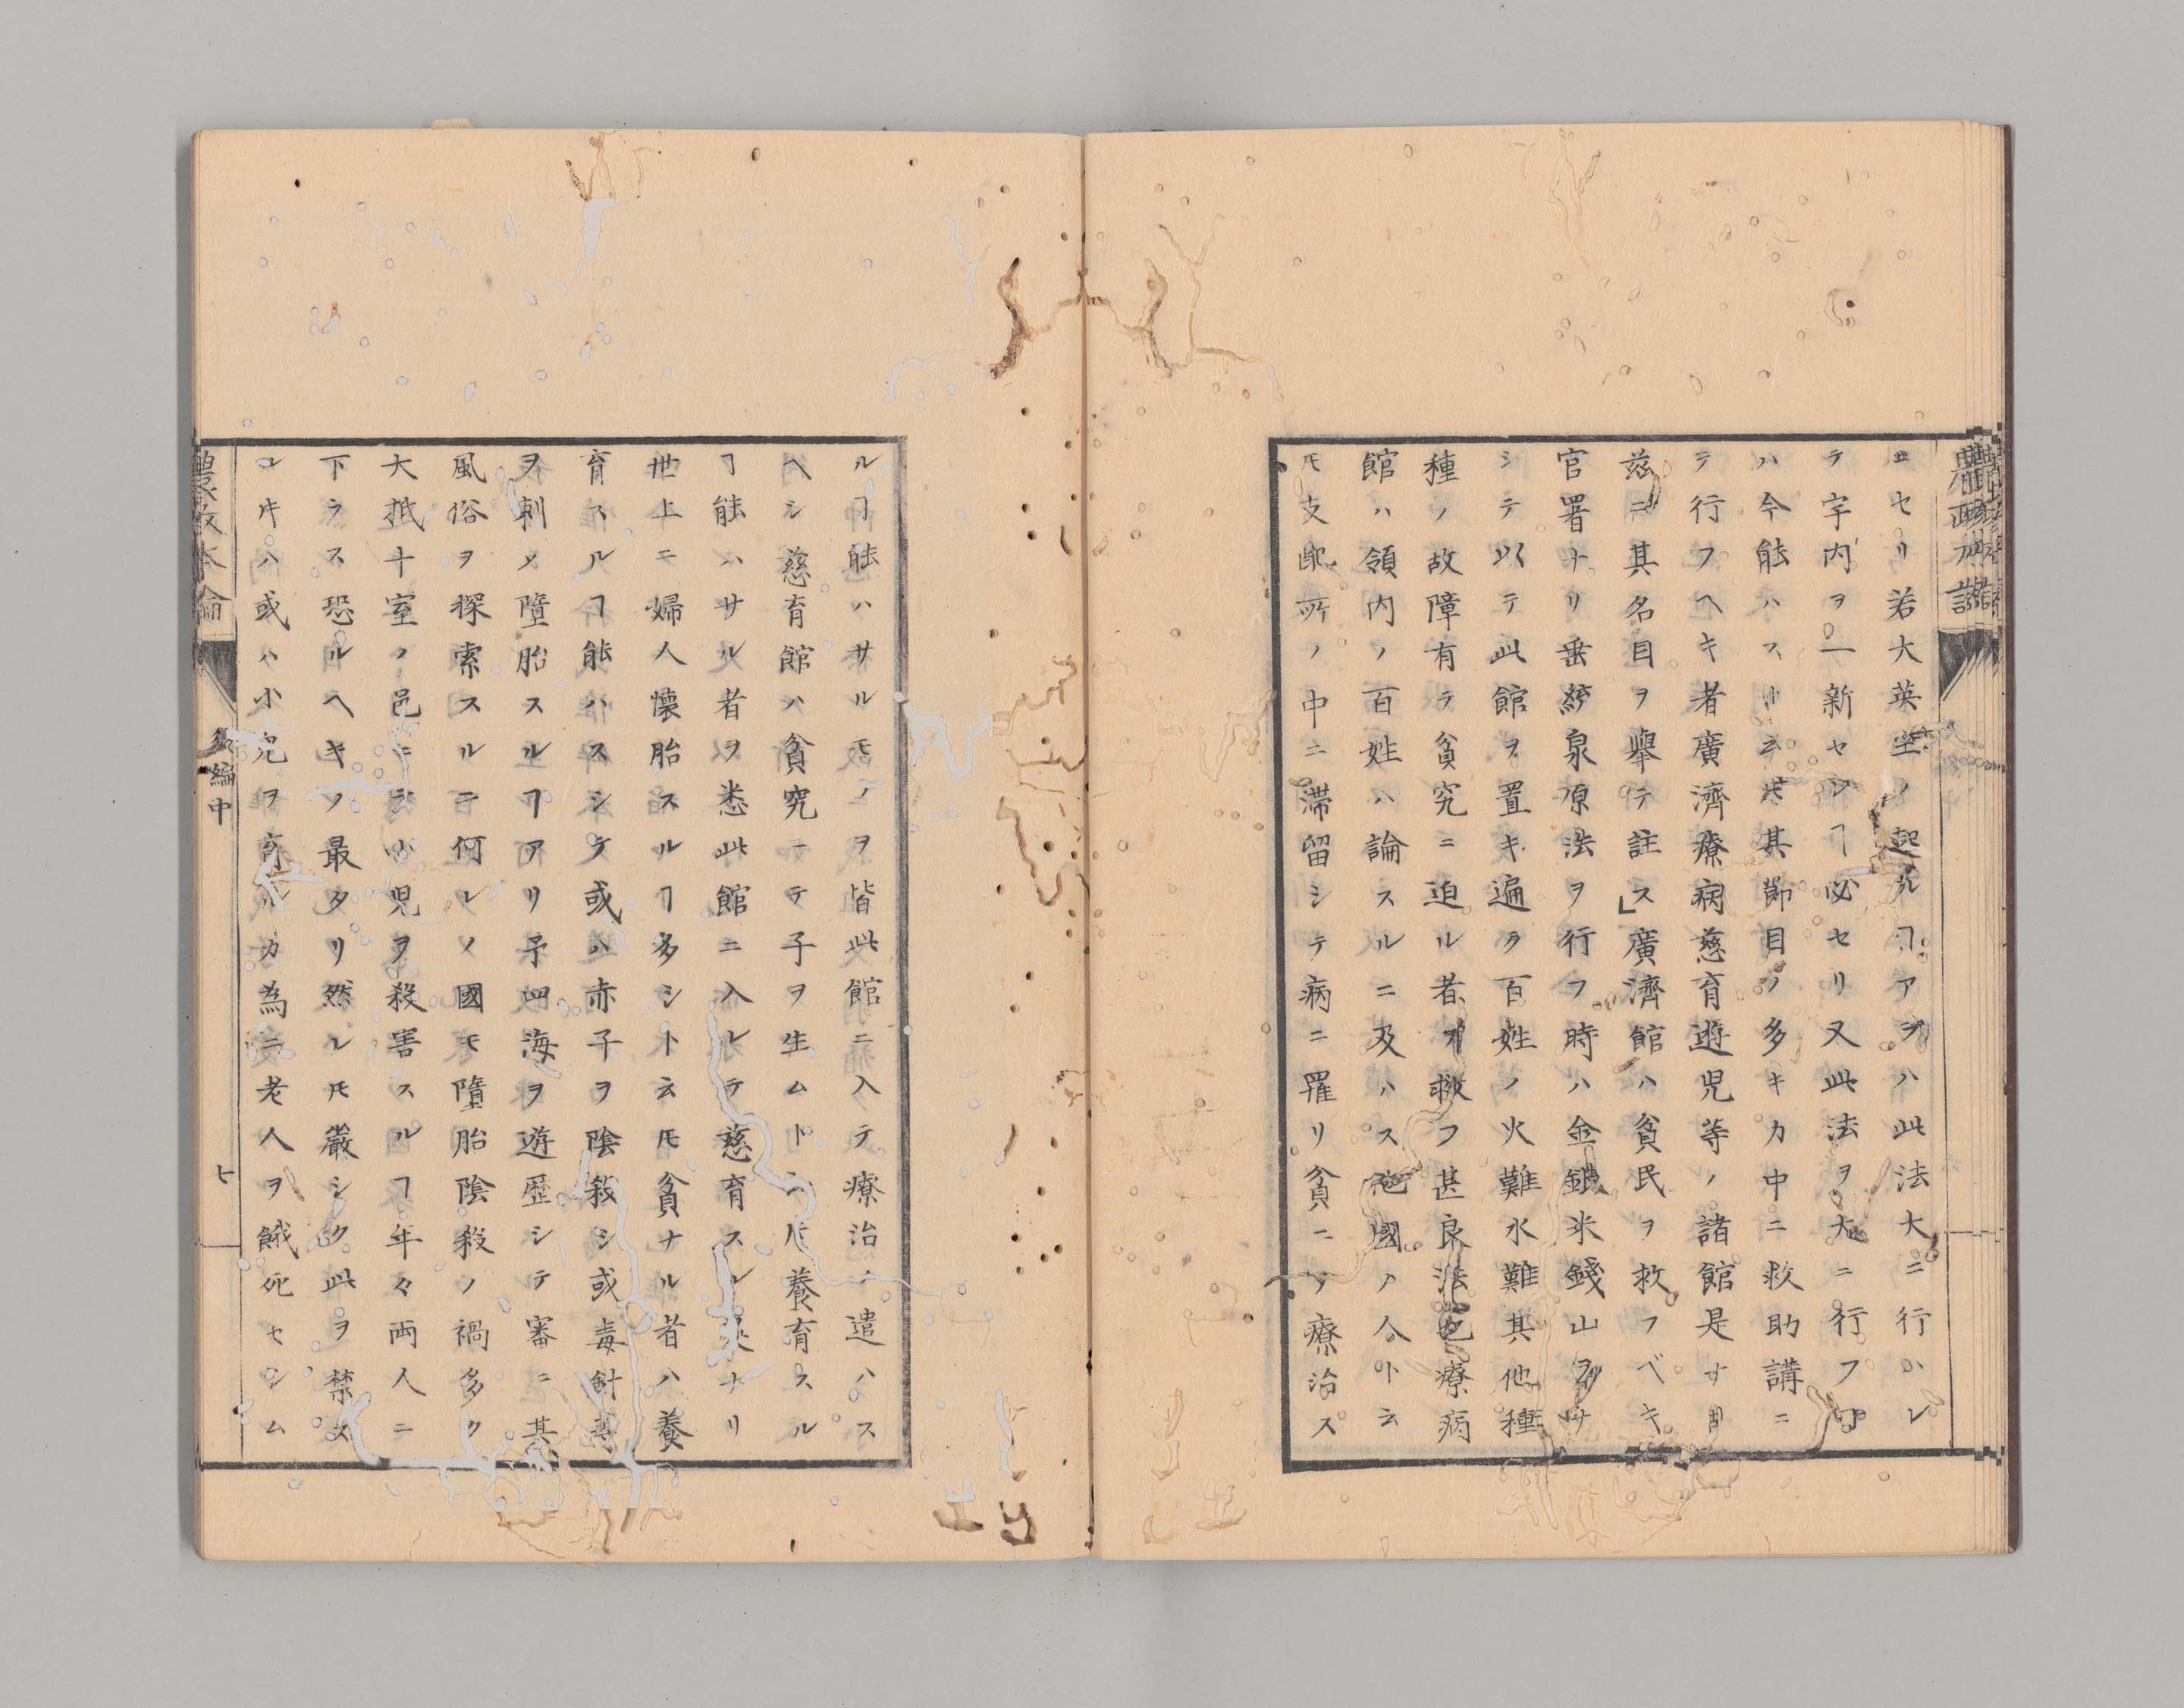 ヨセリ若大英主ノ起ルヿアラハ此法大ニ行ハレ
テ宇内ヲ一新センヿ必セリ又此法ヲ大ニ行フヿ
ハ今能ハスト云𪜈其節目ノ多キカ中ニ救助講ニ
テ行フヘキ者廣濟療病慈育遊児等ノ諸館是
茲ニ其名目ヲ擧テ註ス」廣濟館ハ貧民ヲ救フベキ
官署ナリ垂統泉原法ヲ行フ時ハ金銀米錢山ヲ
シテ以テ此館ヲ置キ遍ク百姓ノ火難水難其他種
種ノ故障有テ貧究ニ迫ル者ヲ救フ甚良法也療病
館ハ領内ノ百姓ハ論スルニ及ハス他國ノ人ト云
𪜈支配所ノ中ニ滞留シテ病ニ罹リ貧ニシテ療治ス
ルヿ能ハサルモノヲ皆此館ニ入テ療治ヲ遣ハス
ヘシ慈育館ハ貧究ニテ子ヲ生ムト云𪜈養育スル
ヿ能ハサル者ヲ悉此館ニ入レテ慈育スル法ナリ
世上ニ婦人懐胎スルヿ多シト云𪜈貧ナル者ハ養
育スルヿ能ハスシテ或ハ赤子ヲ陰殺シ或毒針等
ヲ刺メ墮胎スルヿアリ予四海ヲ遊歴シテ審ニ其
風俗ヲ探索スルニ何レノ國モ墮胎陰殺ノ禍多ク
大抵十室ノ邑ニテ小児ヲ殺害スルヿ年々両人ニ
下ラス恐ルヘキノ最タリ然レ𪜈嚴シク此ヲ禁ス
ルハ或ハ小児ヲ育ルカ為ニ老人ヲ餓死セシム
農政本論
編中
七